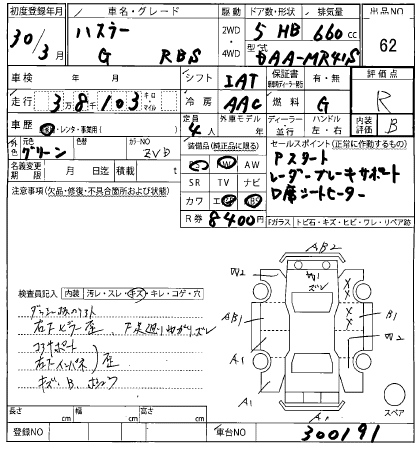 初度登録年月
30/3月
車名・グレード
ハスラー
G RBS
駆動
2WD
・
4WD
ドア数・形状
5 HB
排気量
660 cc
型式
DAA-MR41S
出品NO
62
車検 年 月
シフト
IAT
保証書
有・無
評価点
R
走行 3万8千103 キロ・マイル
冷房
AAC
燃料
G
車歴
レンタ・事業用( )
定員
4人
外車モデル
年
ディーラー
並行
ハンドル
左・右
内装評価
B
外色
元色
グリーン
色替
カラーNO
ZVD
装備品(純正品に限る)
AW
SR TV ナビ
カワ
セールスポイント(正常に作動するもの)
Pスタート
レーダーブレーキサポート
D席シートヒーター
名義変更期限
月 日迄
積載 t
R券 8400円
Fガラス トビ石・キズ・ヒビ・ワレ・リペア跡
注意事項(欠品・修復・不具合箇所および状態)
検査員記入
内装 汚レ・スレ・キズ・キレ・コゲ・穴
右下ピラー歪
コアサポート
右下インパネ
歪
キズ、B
AB2
W2
ズレ
AB1
B1
A1
W2
A1
A1
スペア
長さ cm
幅 cm
高さ cm
登録NO
車台NO
300191